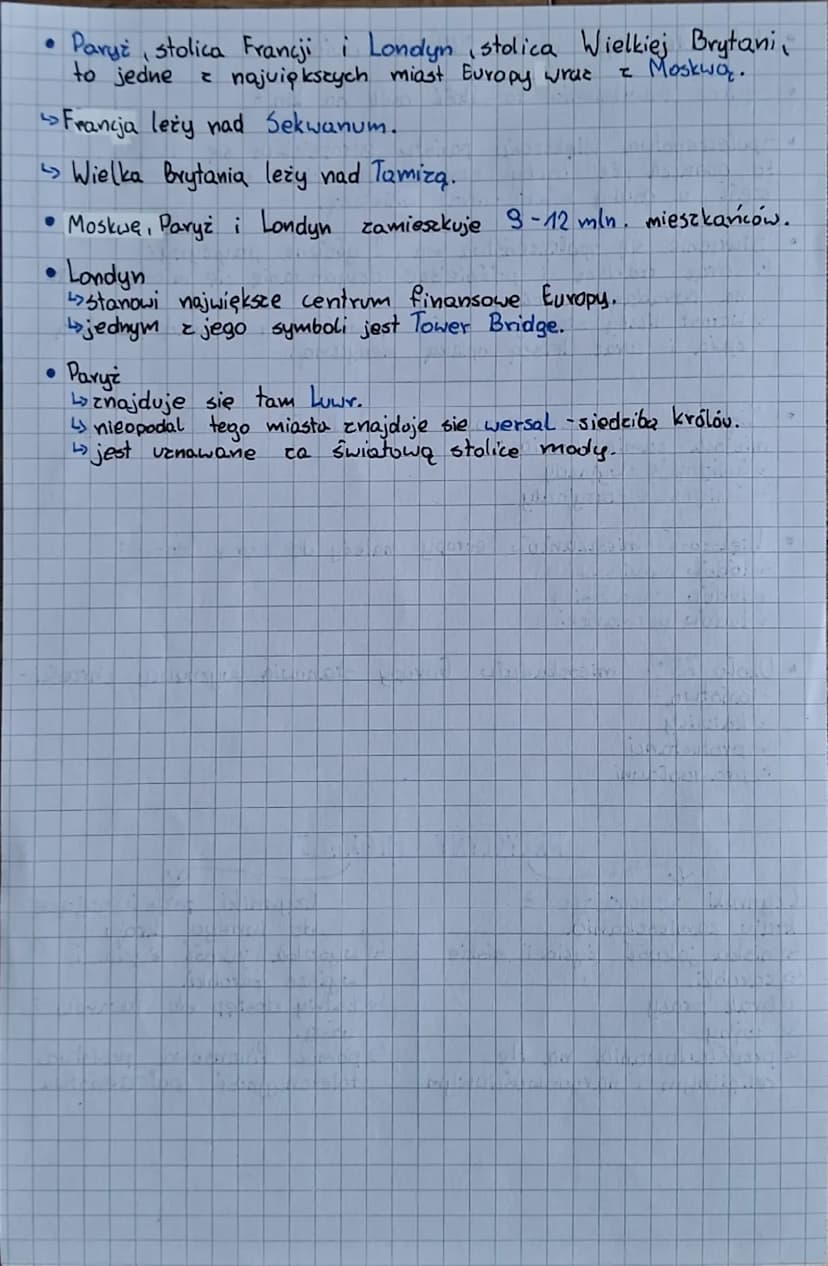 • Paryż, stolica Francji i Londyn, stolica Wielkiej Brytani,
to jedne z największych miast Europy wraz z Moskwą.
↳ Francja leży nad Sekwanum.
↳ Wielka Brytania leży nad Tamizą.
• Moskwę, Paryż i Londyn zamieszkuje 9-12 mln. mieszkańców.
• Londyn
↳ stanowi największe centrum finansowe Europy.
↳ jednym z jego symboli jest Tower Bridge.
• Paryż
↳ znajduje się tam Luwr.
↳ nieopodal tego miasta znajdoje sie wersal - siedziba królów.
↳ jest uznawane za światową stolice mody.